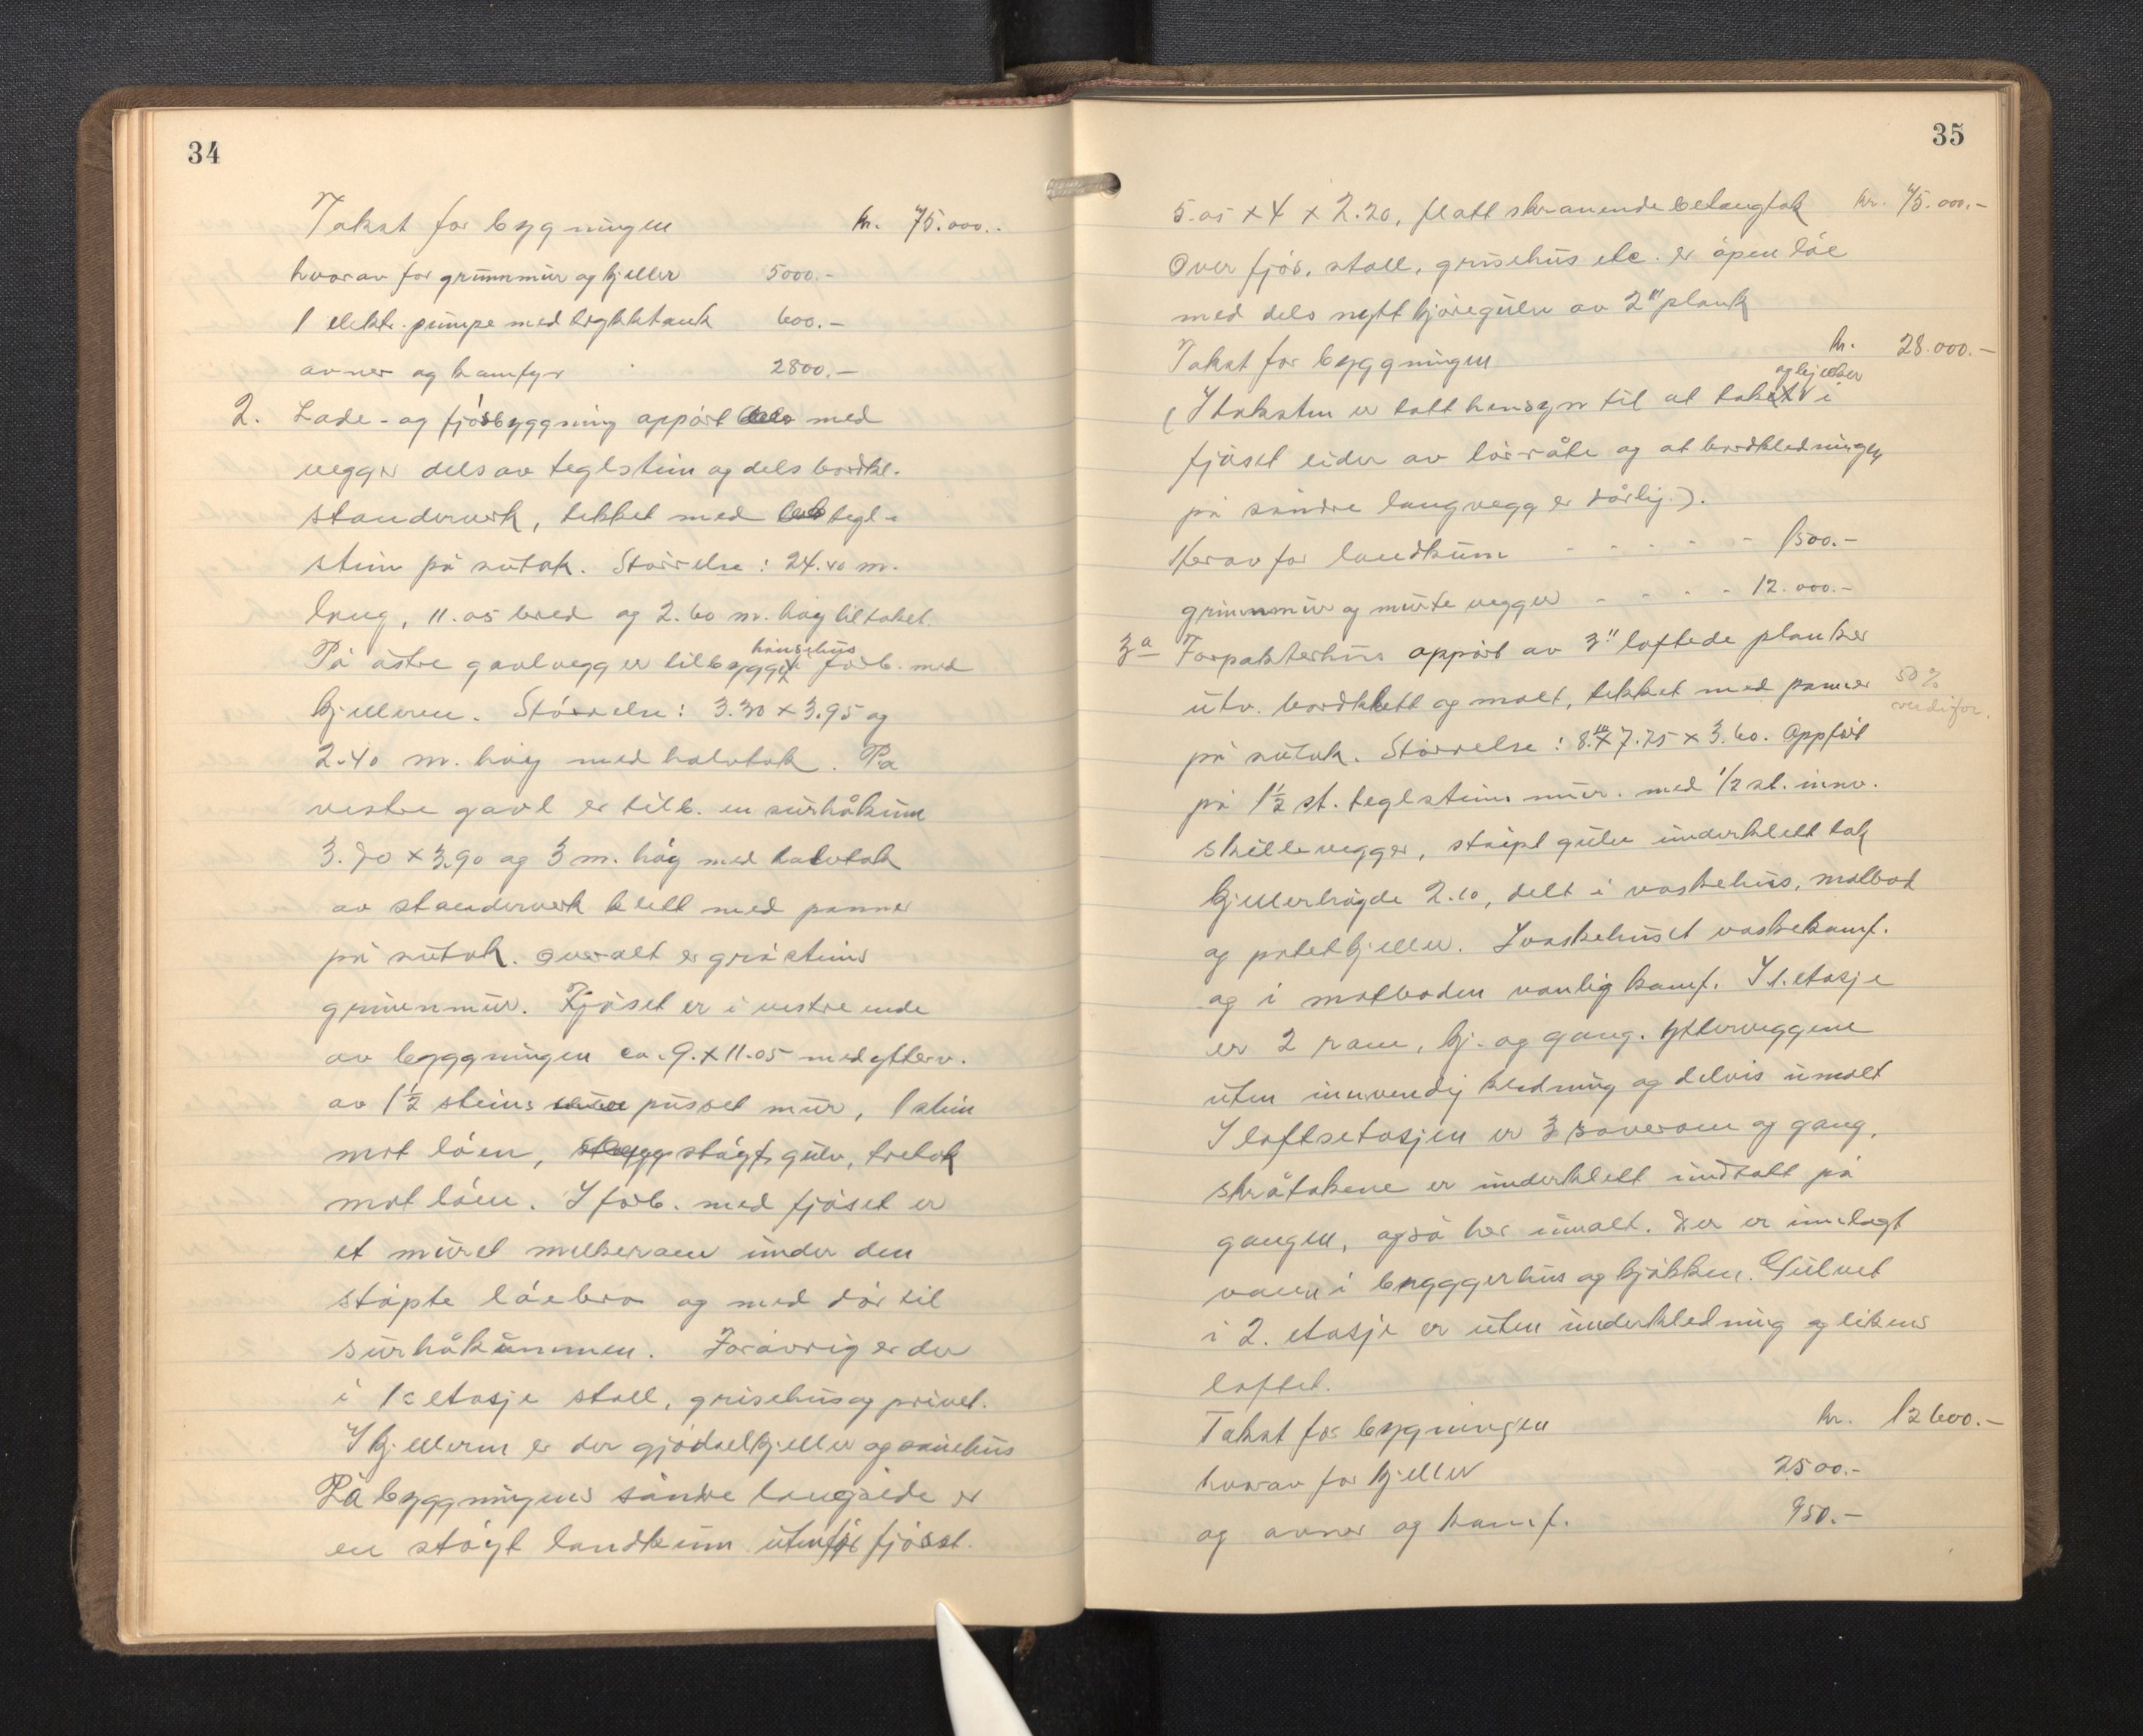 34
Takst for bygningen kr. 75.000.-
hvorav for grunnmur og kjeller 5000.-
1 elektr. pumpe med trykktank 600.-
ovner og kamfyr 2800.-
2. Lade- og fjösbyggning oppört med
vegger dels av teglstein og dels bordkl.
standerverk, tekket med tegl-
stein på sutak. Störrelse: 24.40 m.
lang, 11.05 bred og 2.60 m. höy til taket.
På östre gavlvegg er tilbygget hönsehus i forb. med
kjelleren. Störrelse: 3.30 x 3.95 og
2.40 m. höy med halvtak. På
vestre gavl er tilb. en surhåkum
3.70 x 3.90 og 3 m. höy med halvtak
av standerverk klett med panner
på sutak. Overalt er gråsteins
grunnmur. Fjöset er i vestre ende
av byggningen ca. 9. x 11.05 med ytterv.
av 1½ steins pusset mur, 1 stein
mot löen, stöpt gulv, tretak
mot löen. I forb. med fjöset er
et muret melkerom under den
stöpte löebro og med dör til
surhåkummen. Forövrig er der
i 1ste etasje stall, grisehus og privet.
I kjelleren er der gjödselkjeller og sauehus
På byggningens söndre langside er
en stöpt landkum utenfor fjöset.
35
5.05 x 4 x 2.20, flatt skrånende betongtak kr. 75.000.-
Over fjös, stall, grisehus etc. er åpen löe
med dels nytt kjöregulv av 2" plank
Takst for byggningen kr. 28.000.-
og bjelker
(I taksten er tatt hensyn til at taket i
fjöset lider av törråte og at bordkledningen
på söndre langvegg er dårlig.).
Herav for landkum - - - - - 1500.-
grunnmur og murte vegger - - - - 12.000.-
3a Forpakterhus oppört av 3" loftede planker
utv. bordklett og malt, tekket med panner 50%
verdifor.
på sutak. Störrelse: 8.10 x 7.75 x 3.60. Oppfört
på 1½ st. teglsteins mur. med 1/2 st. innv.
skillevegger, stöpt gulv underklett tak
kjellerhöyde 2.10, delt i vaskehus, matbod
og potetkjeller. I vaskehuset vaskekamf.
og i matboden vanlig kamf. I 1. etasje
er 2 rom, kj. og gang. Ytterveggene
uten innvendig kledning og delvis umalt
I loftsetasjen er 3 soverom og gang,
skråtakene er underklett undtatt på
gangen, også her umalt. Der er innlagt
vann i bryggerhus og kjökken. Gulvet
i 2. etasje er uten underkledning og likens
loftet.
Takst for bygningen kr. 12600.-
hvorav for kjeller 2500.-
og ovner og kamf. 950.-